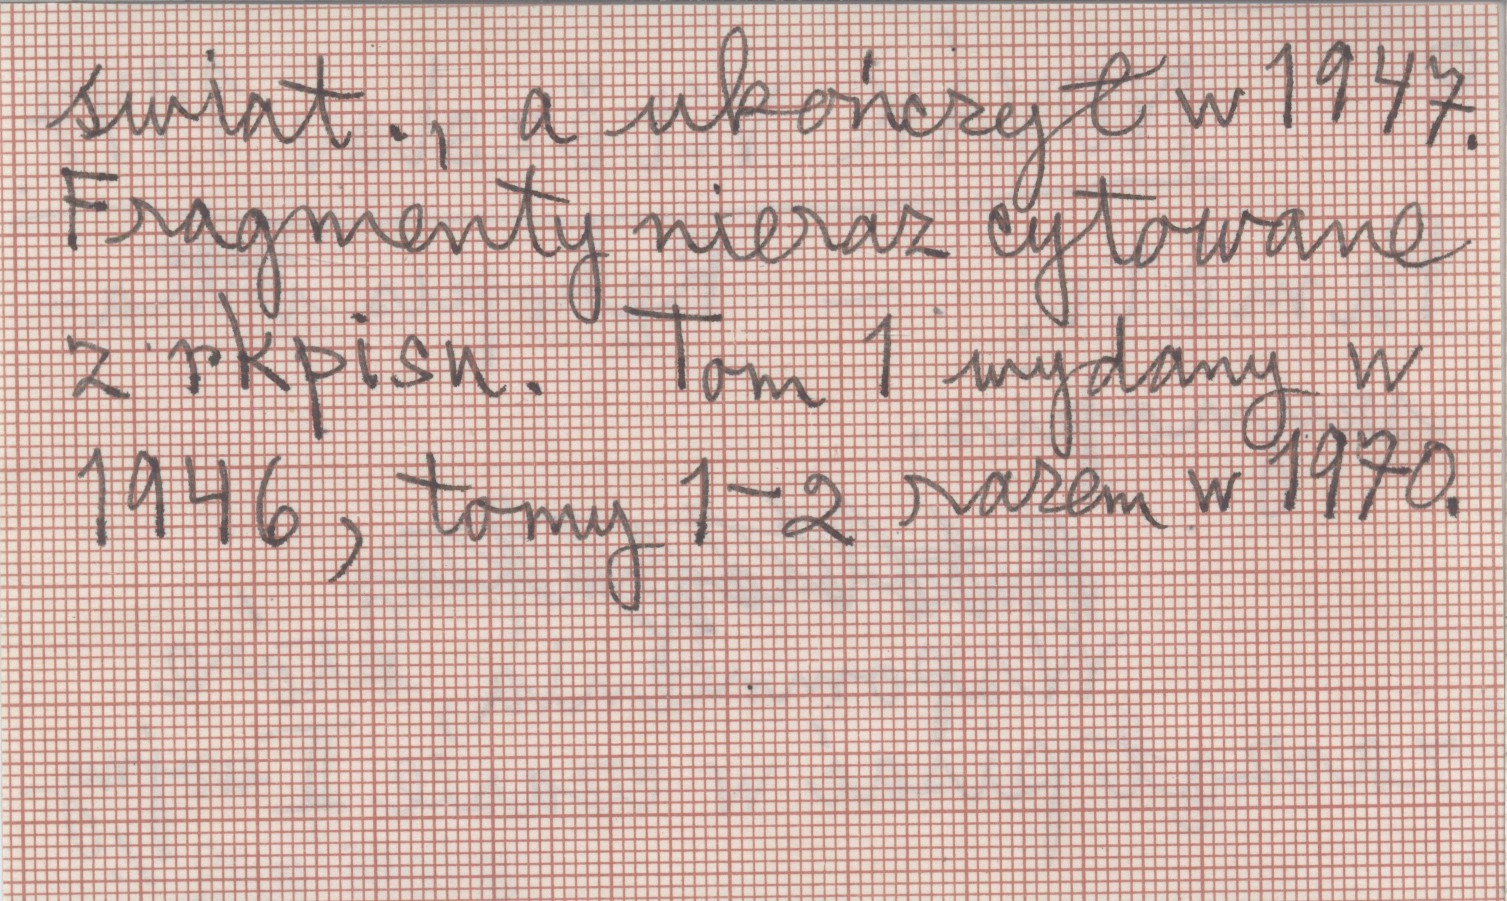 świat., a ukończył w 1947.
Fragmenty nieraz cytowane
z rkpisu. Tom 1 wydany w
1946, tomy 1-2 razem w 1970.